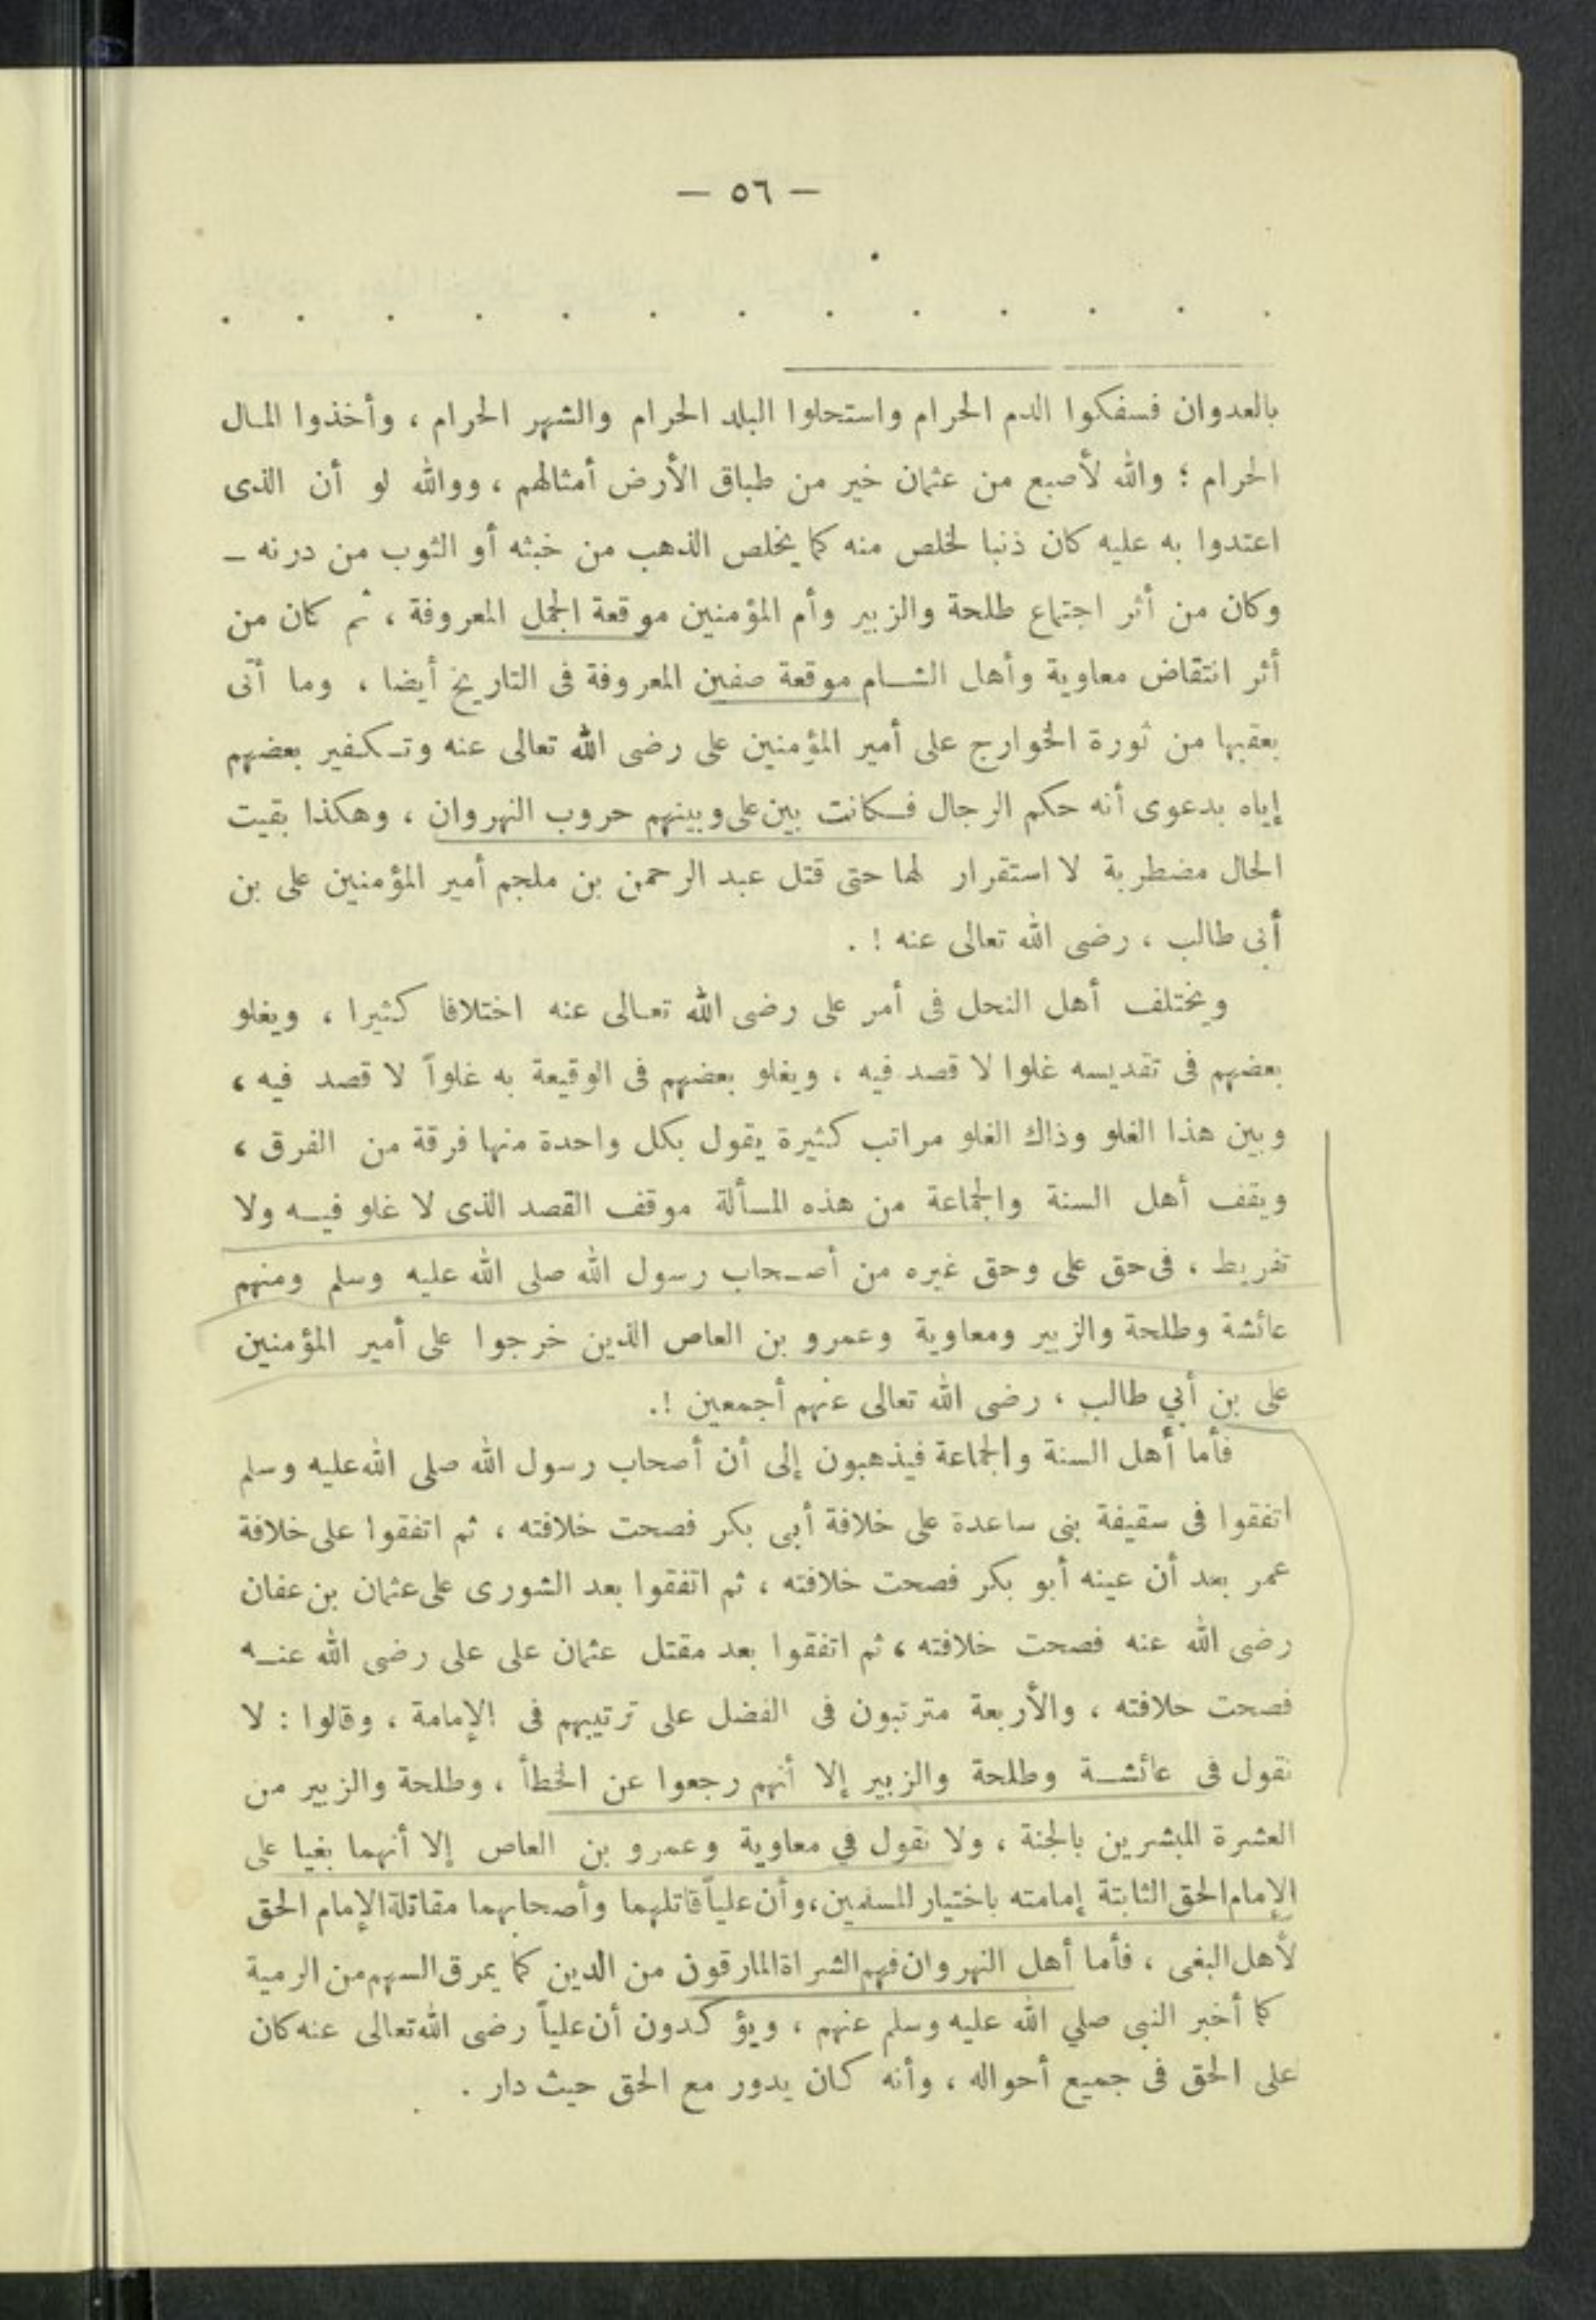 — ٥٦ —
. . . . . . . . . . . . .
بالعدوان فسفكوا الدم الحرام واستحلوا البلد الحرام والشهر الحرام ، وأخذوا المال
الحرام ؛ والله لأصبع من عثمان خير من طباق الأرض أمثالهم ، ووالله لو أن الذى
اعتدوا به عليه كان ذنبا لخلص منه كما يخلص الذهب من خبثه أو الثوب من درنه —
وكان من أثر اجتماع طلحة والزبير وأم المؤمنين موقعة الجمل المعروفة ، ثم كان من
أثر انتقاض معاوية وأهل الشام موقعة صفين المعروفة فى التاريخ أيضا ، وما أتى
بعقبها من ثورة الخوارج على أمير المؤمنين على رضى الله تعالى عنه وتكفير بعضهم
إياه بدعوى أنه حكم الرجال فكانت بين على وبينهم حروب النهروان ، وهكذا بقيت
الحال مضطربة لا استقرار لها حتى قتل عبد الرحمن بن ملجم أمير المؤمنين على بن
أبى طالب ، رضى الله تعالى عنه ! .
ويختلف أهل النحل فى أمر على رضى الله تعالى عنه اختلافا كثيرا ، ويغلو
بعضهم فى تقديسه غلوا لا قصد فيه ، ويغلو بعضهم فى الوقيعة به غلواً لا قصد فيه ،
وبين هذا الغلو وذاك الغلو مراتب كثيرة يقول بكل واحدة منها فرقة من الفرق ،
ويقف أهل السنة والجماعة من هذه المسألة موقف القصد الذى لا غلو فيه ولا
تفريط ، فى حق على وحق غيره من أصحاب رسول الله صلى الله عليه وسلم ومنهم
عائشة وطلحة والزبير ومعاوية وعمرو بن العاص الذين خرجوا على أمير المؤمنين
على بن أبي طالب ، رضى الله تعالى عنهم أجمعين !.
فأما أهل السنة والجماعة فيذهبون إلى أن أصحاب رسول الله صلى الله عليه وسلم
اتفقوا فى سقيفة بنى ساعدة على خلافة أبى بكر فصحت خلافته ، ثم اتفقوا على خلافة
عمر بعد أن عينه أبو بكر فصحت خلافته ، ثم اتفقوا بعد الشورى على عثمان بن عفان
رضى الله عنه فصحت خلافته ، ثم اتفقوا بعد مقتل عثمان على على رضى الله عنه
فصحت خلافته ، والأربعة مترتبون فى الفضل على ترتيبهم فى الإمامة ، وقالوا : لا
نقول فى عائشة وطلحة والزبير إلا أنهم رجعوا عن الخطأ ، وطلحة والزبير من
العشرة المبشرين بالجنة ، ولا نقول في معاوية وعمرو بن العاص إلا أنهما بغيا على
الإمام الحق الثابتة إمامته باختيار المسلمين ، وأن علياً قاتلهما وأصحابهما مقاتلة الإمام الحق
لأهل البغى ، فأما أهل النهروان فهم الشراة المارقون من الدين كما يمرق السهم من الرمية
كما أخبر النبى صلي الله عليه وسلم عنهم ، ويؤكدون أن علياً رضى الله تعالى عنه كان
على الحق فى جميع أحواله ، وأنه كان يدور مع الحق حيث دار .